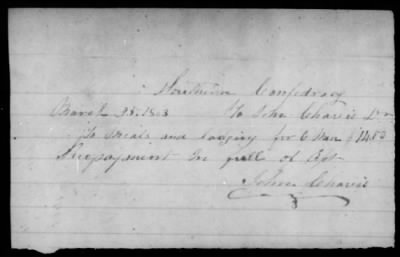 Southern Confedracy
March 25. 1863 To John Chavis Dr
To Meals and lodging for 6 Men $14.50
payment in full of
John Chavis